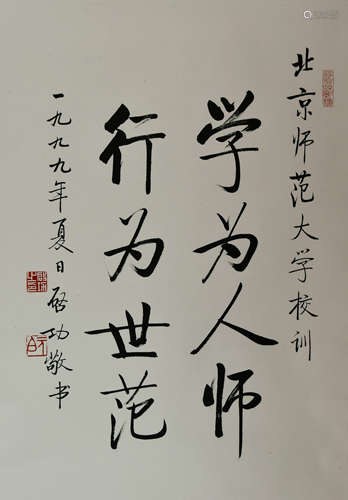 北京师范大学校训
学为人师
行为世范
一九九九年夏日启功敬书